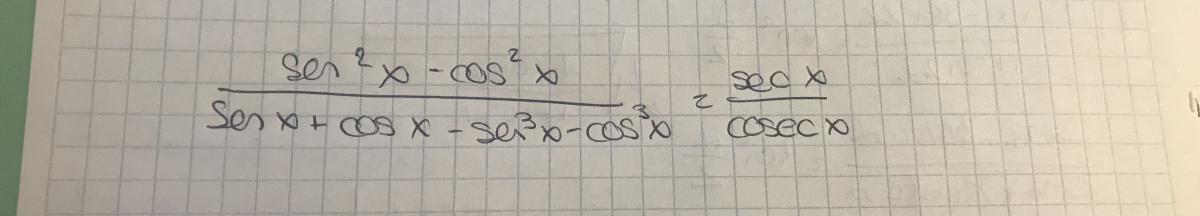 sen²x - cos²x / sen x + cos x - sen³x - cos³x = sec x / cosec x